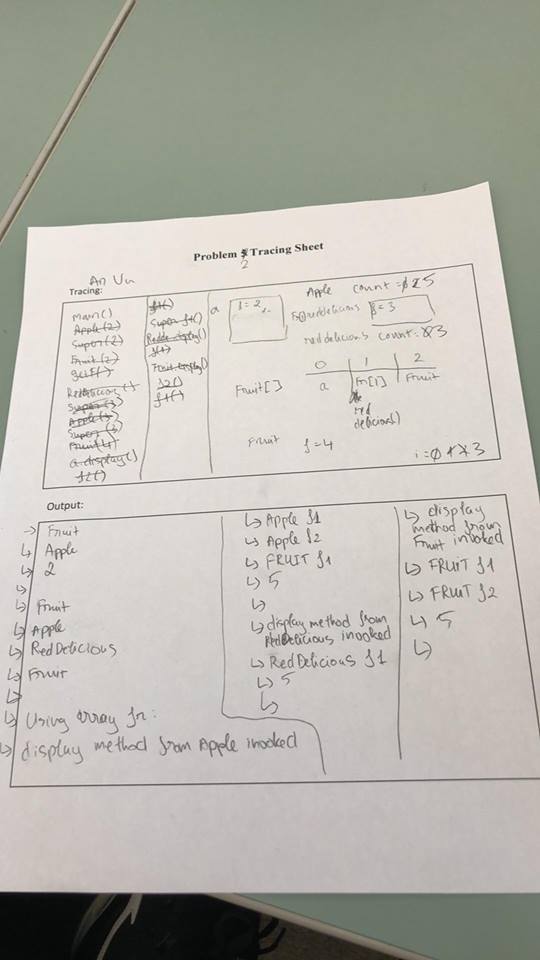 Problem 2 Tracing Sheet
An Vu
Tracing:
main()
Apple(2)
Super(2)
Fruit(2)
getf()
RedDelicious()
Super(3)
Apple(3)
Super(3)
Fruit(4)
a.display()
f2()
f1()
Super f1()
f1()
f2()
f1()
a
f=2
Apple count = 0 2 5
reddelicious f=3
red delicious count: 3
0 1 2
Fruit[] a Fruit
red
delicious()
Fruit f=4
i=0 1 2 3
Output:
→ Fruit
↳ Apple
↳ 2
↳
↳ Fruit
↳ Apple
↳ RedDelicious
↳ Fruit
↳
↳ Using array fr:
↳ display method from Apple invoked
↳ Apple f1
↳ Apple f2
↳ FRUIT f1
↳ 5
↳
↳ display method from
RedDelicious invoked
↳ RedDelicious f1
↳ 5
↳
↳ display
method from
Fruit invoked
↳ FRUIT f1
↳ FRUIT f2
↳ 5
↳